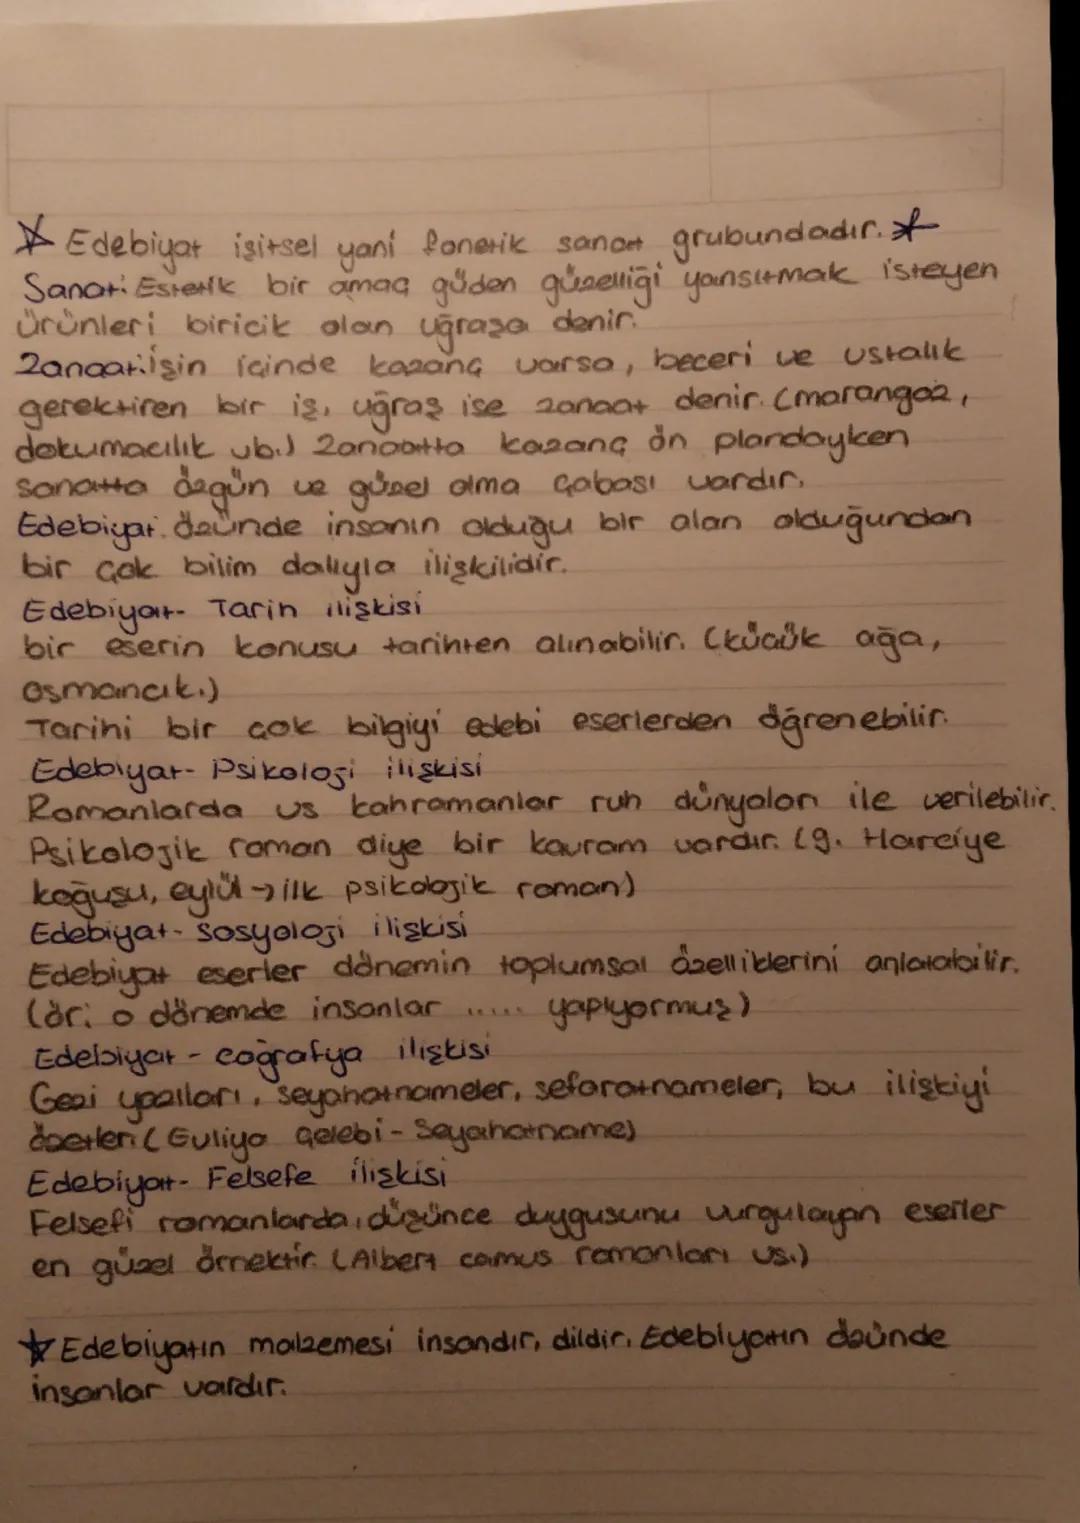 Edebiyat işitsel yani fonetik sanat grubundadır.
Sanat: Estetik bir amaç güden güzelliği yansıtmak isteyen
ürünleri biricik olan uğraşa denir.
Zanaat: işin içinde kazanç varsa, beceri ve ustalık
gerektiren bir iş, uğraş ise zanaat denir. (marangoz,
dokumacılık vb.) Zanaatta kazanç ön plandayken
sanatta özgün ve güzel olma çabası vardır.
Edebiyat: özünde insanın olduğu bir alan olduğundan
bir çok bilim dalıyla ilişkilidir.
Edebiyat- Tarih ilişkisi
bir eserin konusu tarihten alınabilir. (küçük ağa,
osmancık.)
Tarihi bir çok bilgiyi edebi eserlerden öğrenebilir.
Edebiyat- Psikoloji ilişkisi
Romanlarda vs kahramanlar ruh dünyaları ile verilebilir.
Psikolojik roman diye bir kavram vardır. (9. Hariciye
koğuşu, eylül → ilk psikolojik roman)
Edebiyat- sosyoloji ilişkisi
Edebiyat eserler dönemin toplumsal özelliklerini anlatabilir.
(ör: o dönemde insanlar ..... yapıyormuş)
Edebiyat - coğrafya ilişkisi
Gezi yazıları, seyahatnameler, sefaratnameler, bu ilişkiyi
özetler. (Evliya Çelebi - Seyahatname)
Edebiyat- Felsefe ilişkisi
Felsefi romanlarda, düşünce duygusunu vurgulayan eserler
en güzel örnektir. (Albert camus romanları vs.)
Edebiyatın malzemesi insandır, dildir. Edebiyatın özünde
insanlar vardır.